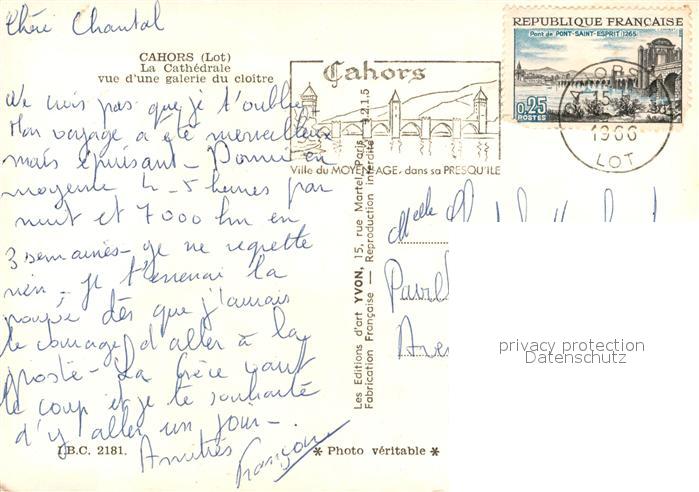 Chère Chantal
CAHORS (Lot)
La Cathédrale
vue d'une galerie du cloître
Ne crois pas que je t'oublie.
Mon voyage a été merveilleux
mais épuisant - Dormi en
moyenne 4-5 heures par
nuit et 7000 km en
3 semaines - je ne regrette
rien - je t'enverrai la
poupée dès que j'aurais
le courage d'aller à la
poste - La Grèce vaut
le coup et je te souhaite
d'y aller un jour -
Amitiés
Françoise
I.B.C. 2181.
* Photo véritable *
Les Editions d'art YVON, 15, rue Martel, Paris
Fabrication Française — Reproduction interdite
9.2.1.5
Cahors
Ville du MOYEN-AGE - dans sa PRESQU'ILE
REPUBLIQUE FRANÇAISE
Pont de PONT-SAINT-ESPRIT 1265
0,25
POSTES
1966
LOT
Melle
Pavil
Ave
privacy protection
Datenschutz